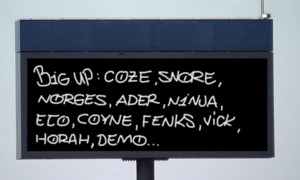 BIG UP: COZE, SNORE,
NORGES, ADER, NINJA,
ETO, COYNE, FENKS, VICK,
HORAH, DEMO...